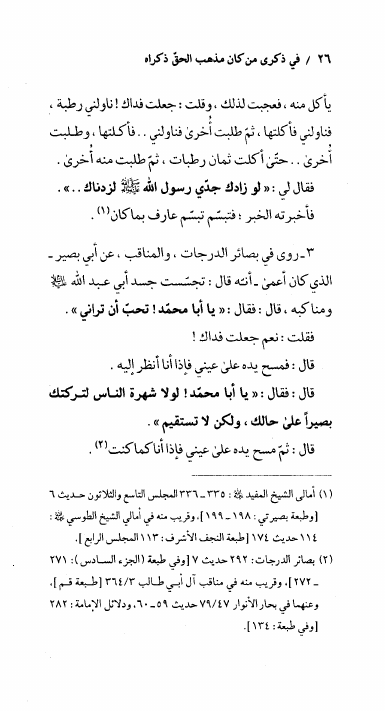 ٢٦ / في ذكرى من كان مذهب الحقّ ذكراه
يأكل منه ، فعجبت لذلك ، وقلت : جعلت فداك ! ناولني رطبة ،
فناولني فأكلتها ، ثمّ طلبت أُخرىٰ فناولني . . فأكلتها ، وطلبت
أُخرىٰ . . حتّىٰ أكلت ثمان رطبات ، ثمّ طلبت منه أُخرىٰ .
فقال لي : « لو زادك جدّي رسول الله ﷺ لزدناك . . » .
فأخبرته الخبر ؛ فتبسّم تبسّم عارف بما كان(١) .
٣ ـ روى في بصائر الدرجات ، والمناقب ، عن أبي بصير ـ
الذي كان أعمىٰ ـ أنّه قال : تجسّست جسد أبي عبد الله
ومناكبه ، قال : فقال : « يا أبا محمّد ! تحبّ أن تراني » .
فقلت : نعم جعلت فداك !
قال : فمسح يده علىٰ عيني فإذا أنا أنظر إليه .
قال : فقال : « يا أبا محمّد ! لولا شهرة الناس لتركتك
بصيراً علىٰ حالك ، ولكن لا تستقيم » .
قال : ثمّ مسح يده علىٰ عيني فإذا أنا كما كنت(٢) .
(١) أمالي الشيخ المفيد : ٣٣٥ ـ ٣٣٦ المجلس التاسع والثلاثون حديث ٦
[وطبعة بصيرتي : ١٩٨ ـ ١٩٩] ، وقريب منه في أمالي الشيخ الطوسي :
١١٤ حديث ١٧٤ [طبعة النجف الأشرف : ١١٣ المجلس الرابع] .
(٢) بصائر الدرجات : ٢٩٢ حديث ٧ [وفي طبعة (الجزء السادس) : ٢٧١
ـ ٢٧٢] ، وقريب منه في مناقب آل أبي طالب ٣٦٤/٣ [طبعة قم] ،
وعنهما في بحار الأنوار ٧٩/٤٧ حديث ٥٩ ـ ٦٠ ، ودلائل الإمامة : ٢٨٢
[وفي طبعة : ١٣٤] .